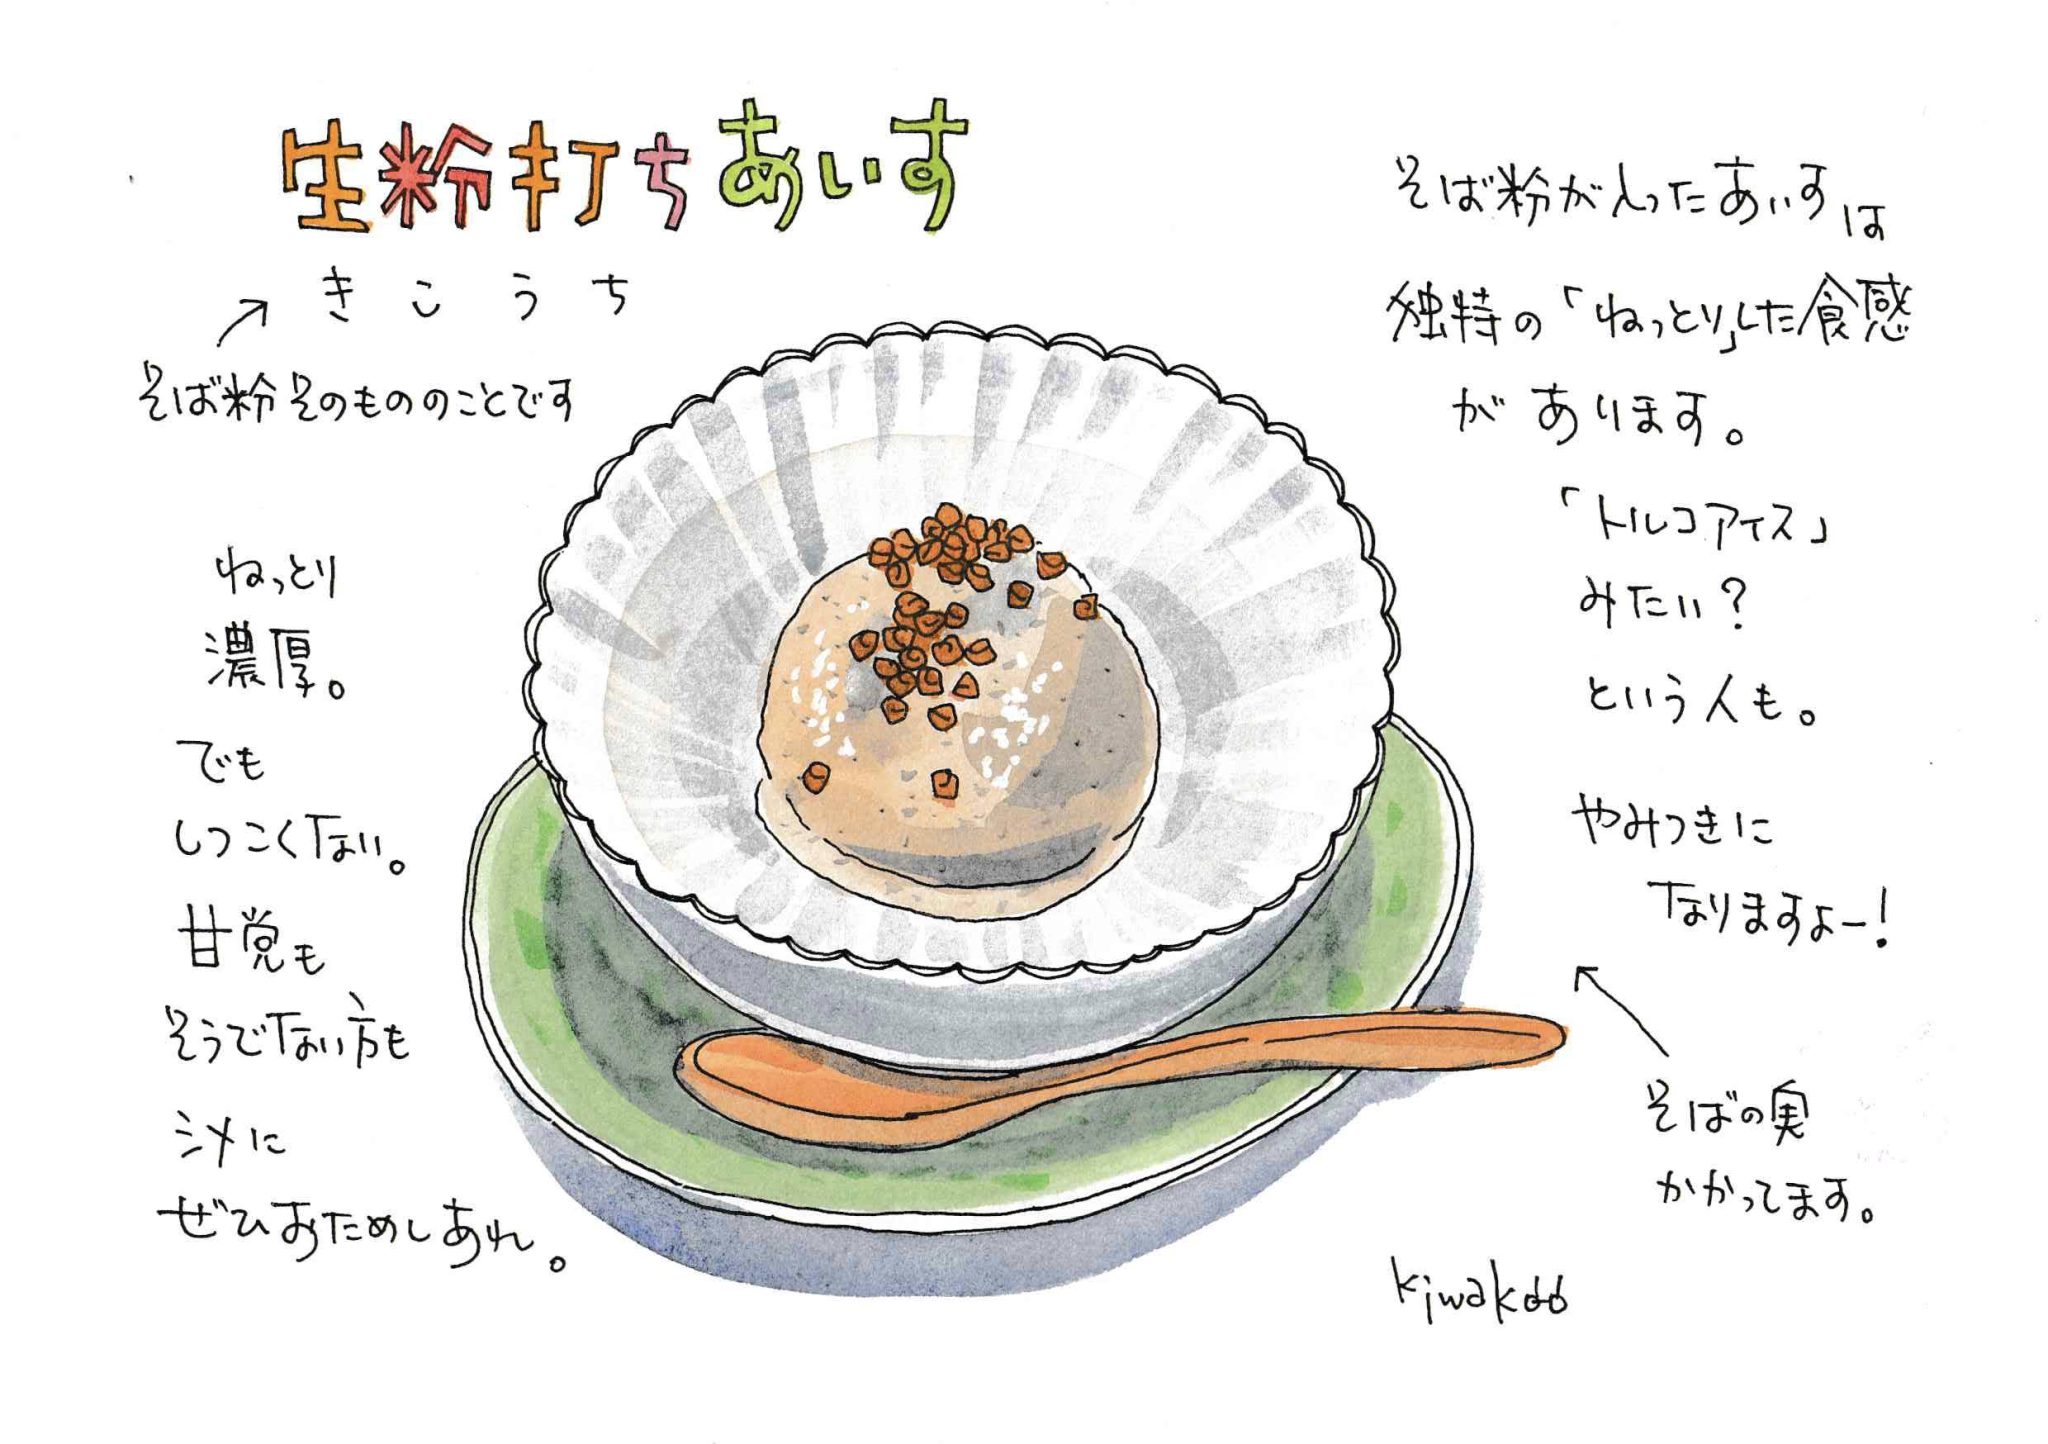 生粉打ちあいす
きこうち
そば粉そのもののことです
ねっとり
濃厚。
でも
しつこくない。
甘党も
そうでない方も
シメに
ぜひおためしあれ。
そば粉が入ったあいすは
独特の「ねっとり」した食感
があります。
「トルコアイス」
みたい?
という人も。
やみつきに
なりますよー!
そばの実
かかってます。